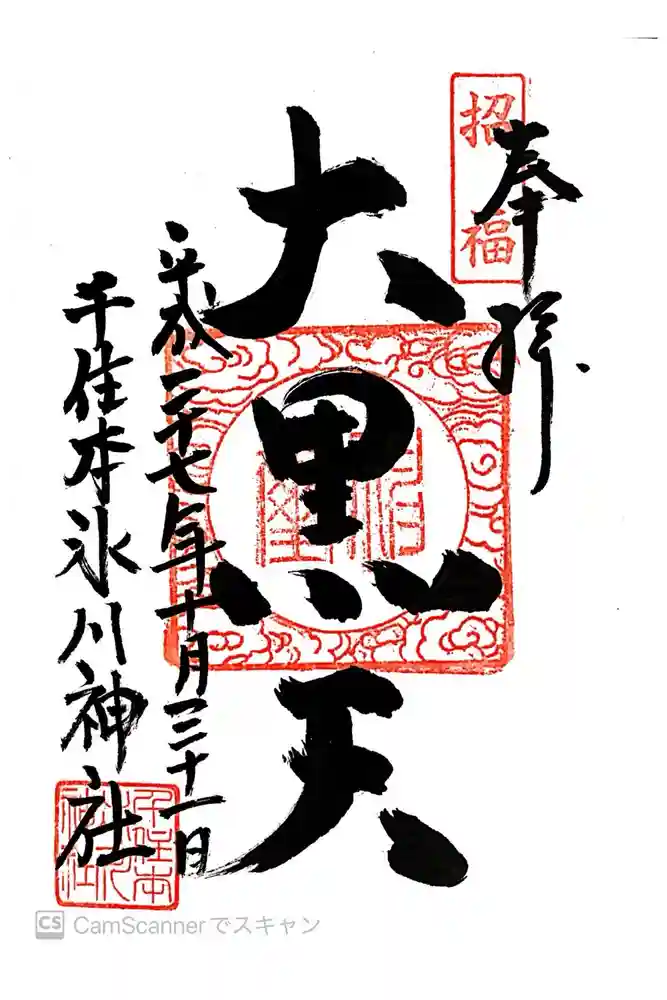 招福
奉拝
大黒天
平成二十七年十月三十一日
千住本氷川神社
CamScannerでスキャン